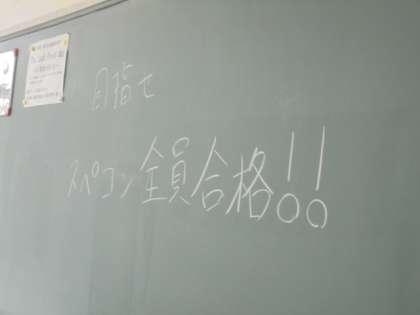 目指せ
スペコン全員合格!!